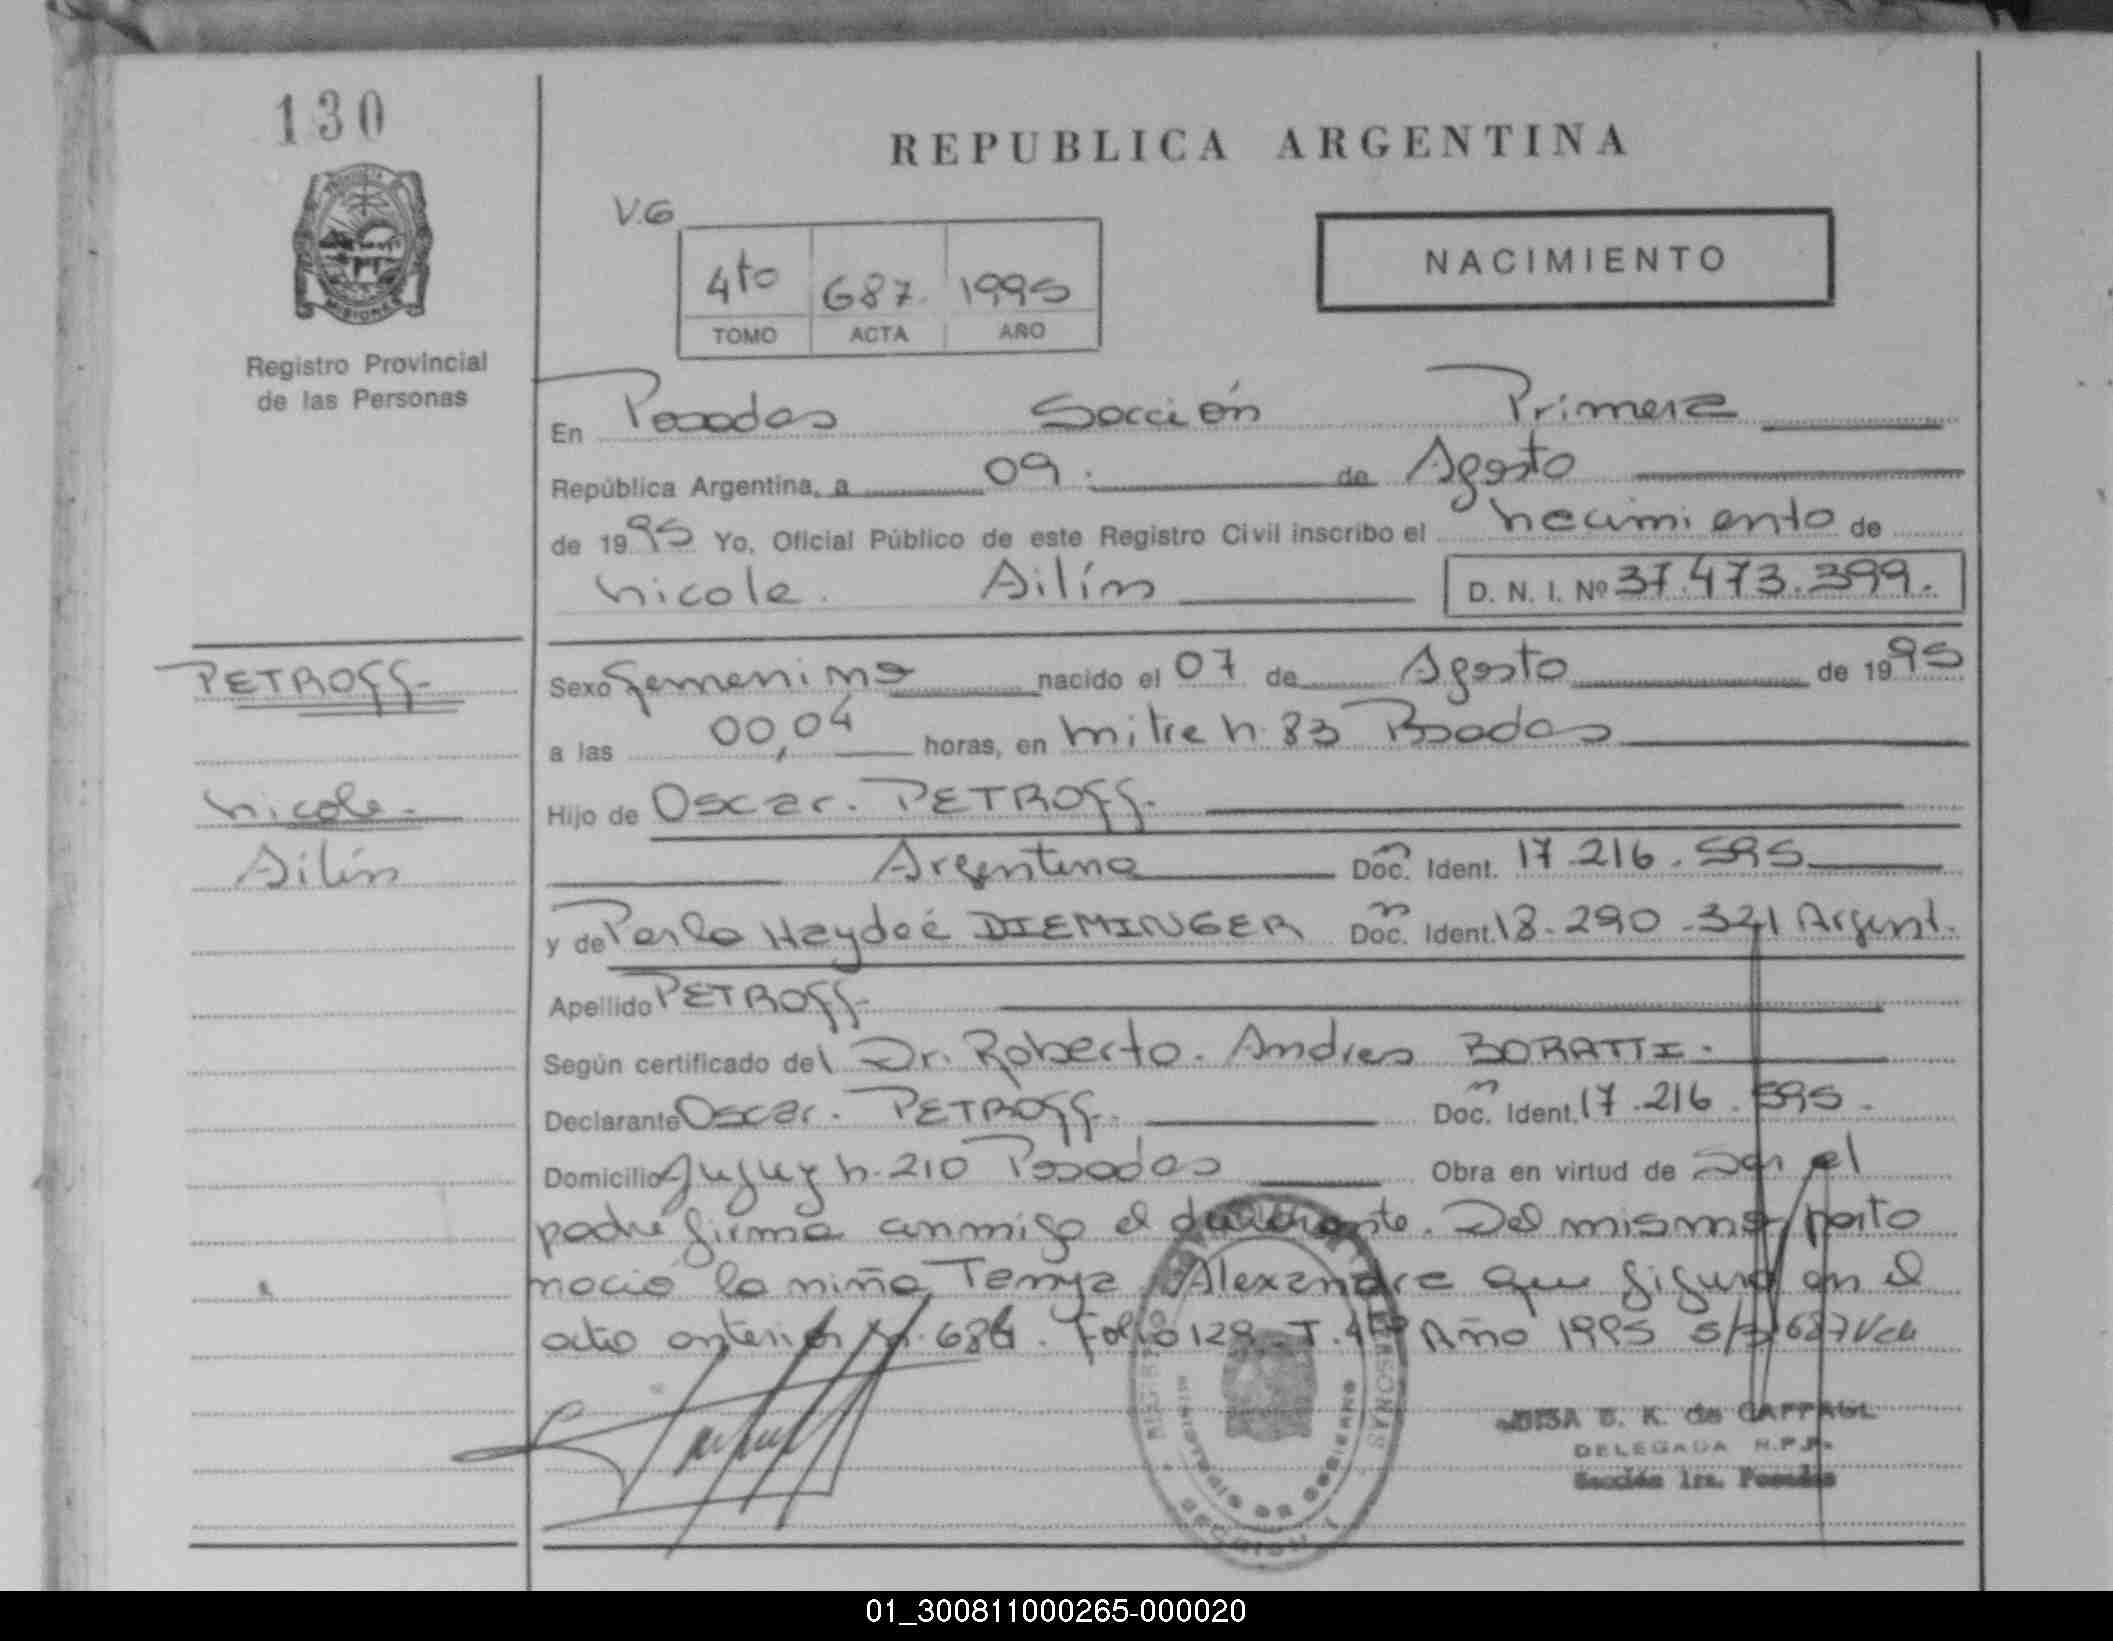 130
REPUBLICA ARGENTINA
V.G
4to 687. 1995
TOMO ACTA AÑO
NACIMIENTO
Registro Provincial
de las Personas
En Posadas Sección Primera
República Argentina, a 09. de Agosto
de 1995 Yo, Oficial Público de este Registro Civil inscribo el nacimiento de
Nicole. Ailín D. N. I. Nº 37.473.399.
PETROFF.
Sexo Femenino nacido el 07 de Agosto de 1995
a las 00,04 horas, en Mitre N. 83 Posadas
Nicole.
Hijo de Oscar. PETROFF.
Ailín
Argentina Doc. Ident. 17.216.595
y de Perla Haydeé DIEMINGER Doc. Ident. 18.290.321 Argent.
Apellido PETROFF.
Según certificado del Dr. Roberto. Andres BORATTI.
Declarante Oscar. PETROFF. Doc. Ident. 17.216.595.
Domicilio Jujuy N. 210 Posadas Obra en virtud de Ser el
padre firma conmigo el declarante. Del mismo parto
nació la niña Temya Alexandra que figura en el
acta anterior N. 686. Folio 129. T. 4to Año 1995 S/B 687 Vale
E. K. de
DELEGADA R.P.P.
Sección 1ra. Posadas
01_300811000265-000020